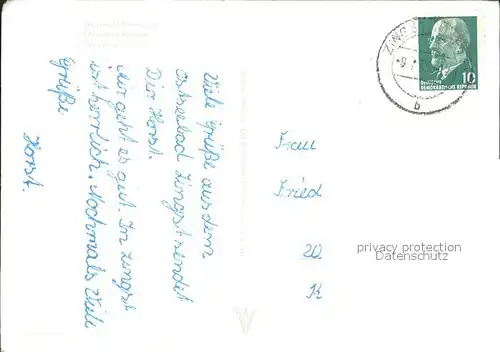 Viele Grüße aus dem
Ostseebad Zingst sendet
Dir Horst.
Mir geht es gut. In Zingst
ist herrlich. Nochmals Viele
Grüße
Horst.
ZING
b
10
DEUTSCHE
DEMOKRATISCHE REPUBLIK
Frau
Fried
20
K
privacy protection
Datenschutz